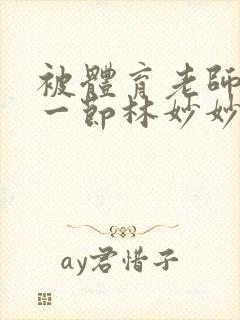 被體育老師
一節林妙妙
ay君惜子